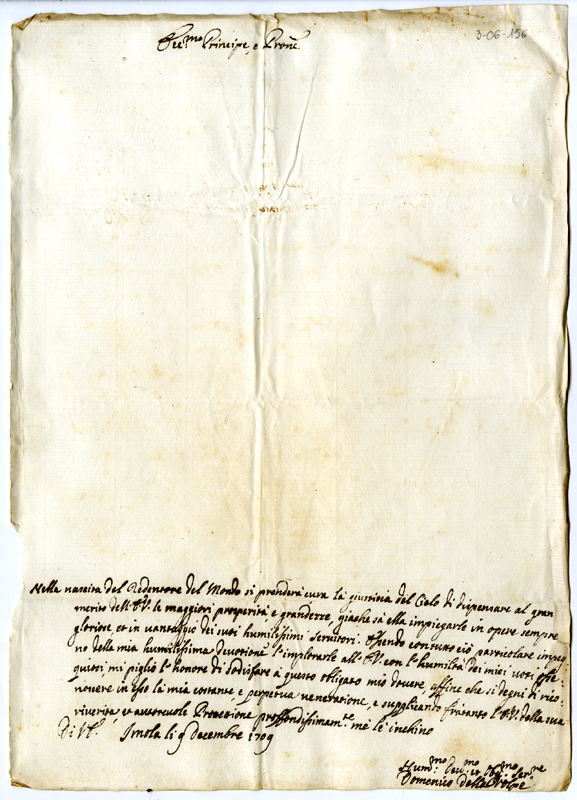 3-06-156
Principe, e Prone
Nella nascita del Redentore del Mondo si prenderà cura la giustitia del Cielo di dispensare al gran
merito dell'A.V. le maggiori prosperità e grandezze, giache sà ella impiegarle in opere sempre
gloriose, et in vantaggio dei suoi humilissimi servitori. Essendo contutto ciò particolare impeg=
no della mia humilissima devotione l'implorarle all'A.V. con l'humiltà dei miei voti osse=
quiosi, mi piglio l'honore di sodisfare a questo obligato mio dovere, affine che si degni di rico=
noscere in esso la mia costante e perpetua veneratione, e supplicando fratanto l'A.V. della sua
riverita et autorevole Protezione proffondissimam.te me le inchino
Di V.A. Imola li 9 decembre 1709
Hum.mo Dev.mo et Obl.mo Ser.re
Domenico della Volpe